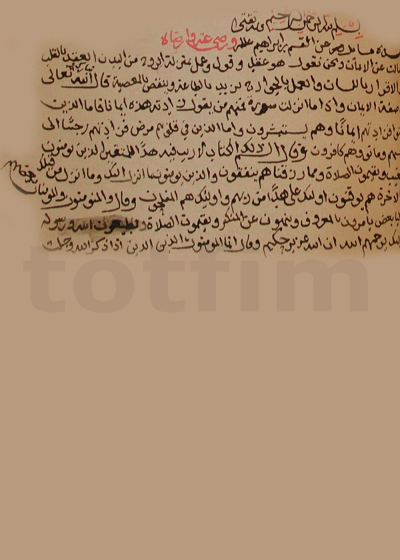 بسم الله الرحمن الرحيم وبه ثقتي
القسم بن ابرهيم عليه السلام ورضي عنه وارضاه
عن الايمان وقول وعمل بمنزلة الروح من البدن العقد بالقلب
والاقرار باللسان والعمل بالجوارح يزيد بالطاعة وينقص بالمعصية قال الله تعالى
صفة الايمان واذا ما انزلت سورة فمنهم من يقول ايكم زادته هذه ايمانا فاما الذين
فزادتهم ايمانا وهم يستبشرون واما الذين في قلوبهم مرض فزادتهم رجسا الى
وماتوا وهم كافرون وقال ذلك الكتاب لا ريب فيه هدا للمتقين الذين يومنون
ويقيمون الصلاة ومما رزقناهم ينفقون والذين يومنون بما انزل اليك وما انزل من قبلك
الاخرة هم يوقنون اوليك على هدا من ربهم واوليك هم المفلحون وقال والمومنون والمومنات
بعض يامرون بالمعروف وينهون عن المنكر ويقيمون الصلاة ويطيعون الله ورسوله
سيرحمهم الله ان الله عزيز حكيم وقال انما المومنون الذين اذا ذكر الله وجلت
totfim